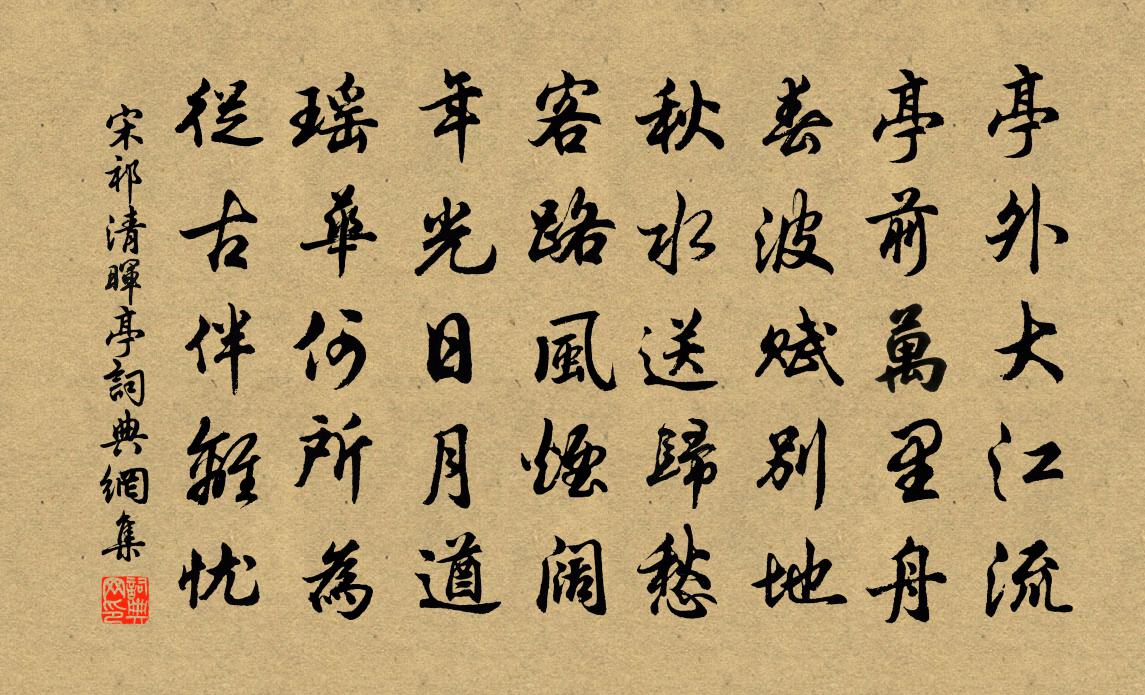 亭外大江流
亭前萬里舟
春波賦別地
秋水送歸愁
客路風煙闊
年光日月遒
瑶華何所為
從古伴離忧
宋祁清暉亭詞典網集
詞典網印